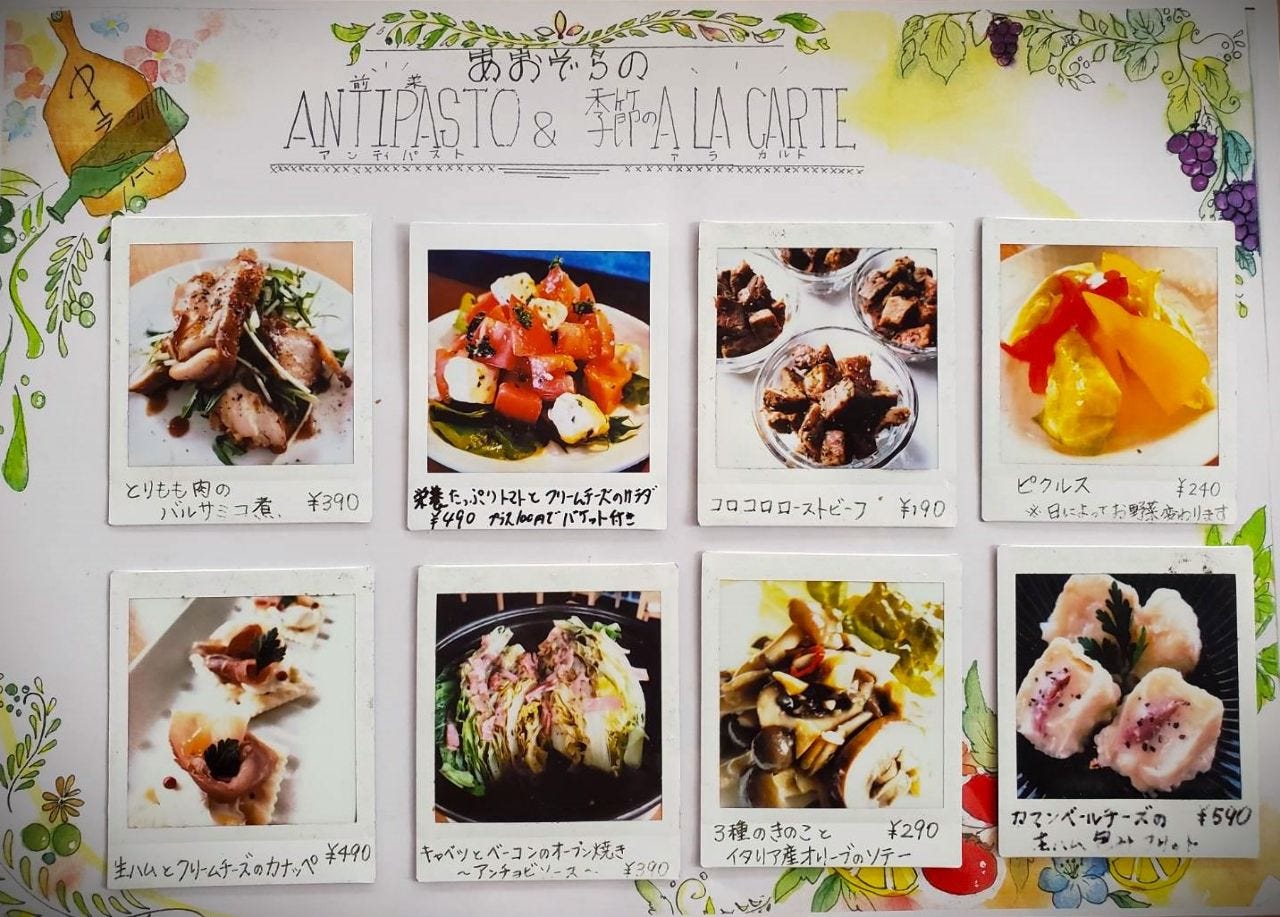 あおぞらの
前菜
ANTIPASTO & 季節のA LA CARTE
アンティパスト アラカルト
とりもも肉の
バルサミコ煮、 ¥390
栄養たっぷりトマトとクリームチーズのサラダ
¥490 プラス100円でバケット付き
コロコロローストビーフ ¥190
ピクルス ¥240
※日によってお野菜変わります
生ハムとクリームチーズのカナッペ ¥490
キャベツとベーコンのオーブン焼き
～アンチョビソース～ ¥390
3種のきのこと ¥290
イタリア産オリーブのソテー
カマンベールチーズの ¥590
生ハム包みフリット